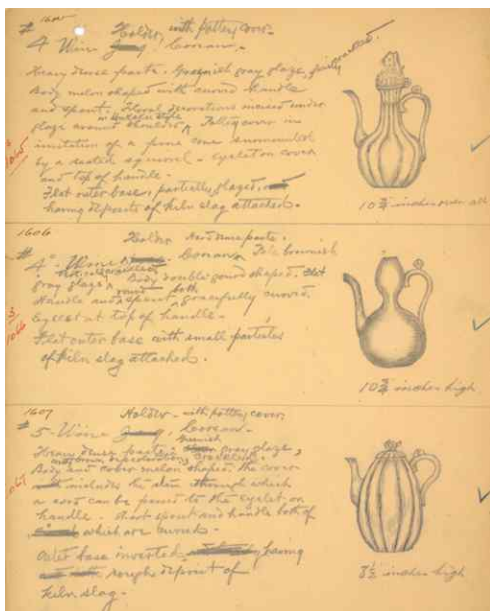 # 1605
Holder, with pottery cover.
4 Wine Jug, Corean.
Heavy dense paste. Greenish gray glaze, finely crackled.
Body melon shaped with curved handle
and spout. Floral decorations incised under
glaze around shoulder, Pottery cover in
imitation of a pine cone surmounted
by a seated squirrel - eyelet on cover
and top of handle -
Flat outer base, partially glazed,
having deposits of kiln slag attached.
10 3/4 inches over all
1606
Holder Hard dense paste.
# 4 - Wine Corean, Pale brownish
gray glaze Body double gourd shaped. Flat
Handle and round spout both gracefully curved.
Eyelet at top of handle -
Flat outer base with small particles
of kiln slag attached.
1066
10 3/4 inches high
1607
# Holder - with pottery cover,
5 - Wine Jug, Corean -
Heavy dense paste, greenish gray glaze,
crackled -
Body and cover melon shaped, the cover
includes the stem through which
a cord can be passed to the eyelet on
handle - short spout and handle both of
which are curved -
Outer base inverted, having
rough deposit of
kiln slag -
1067
8 1/2 inches high